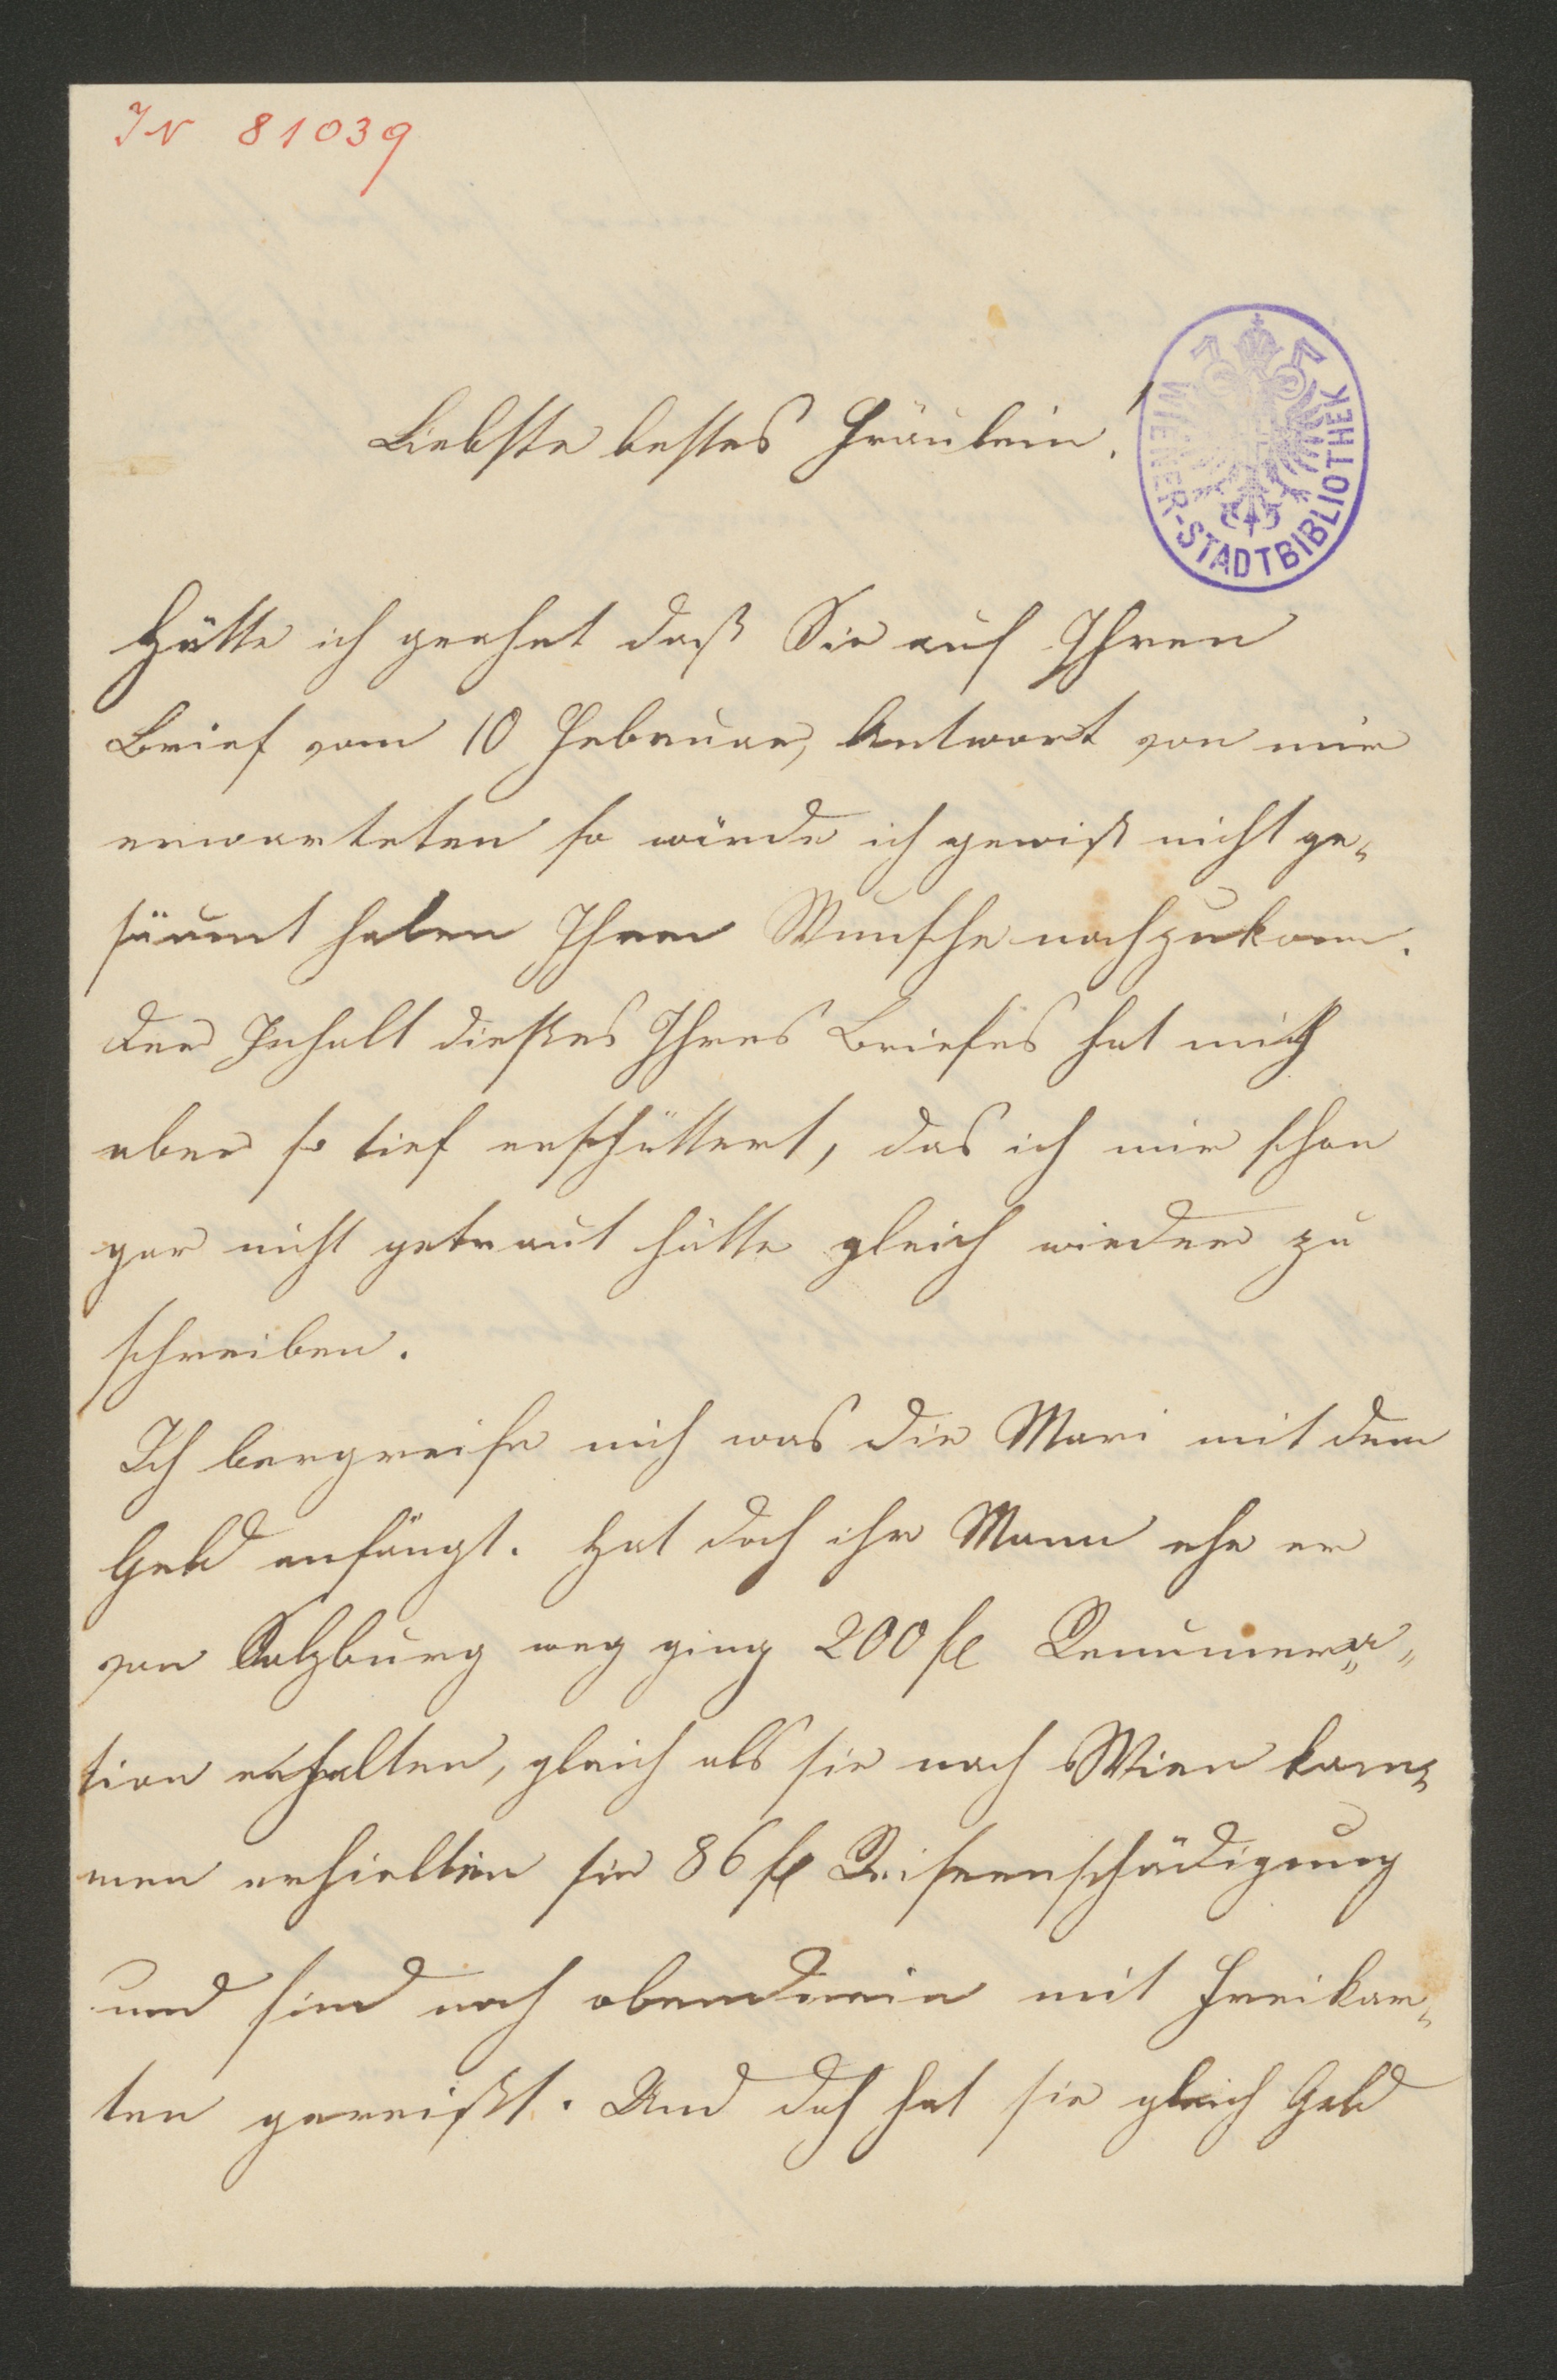 IN 81039
Liebste bestes Fräulein!
WIENER-STADTBIBLIOTHEK
Hätte ich geahnt daß Sie auf Ihren
Brief vom 10 Februar, Antwort von mir
erwarteten so würde ich gewiß nicht ge-
säumt haben Ihren Wunsche nachzukom̅.
Der Inhalt dießes Ihres Briefes hat mich
aber so tief erschüttert, das ich mir schon
gar nicht getraut hätte gleich wieder zu
schreiben.
Ich bergreife nich was die Mari mit dem
Geld anfängt. Hat doch ihr Mann ehe er
von Salzburg weg ging 200 fl Renumera-
tion erhalten, gleich als sie nach Wien kom-
men erhielten sie 86 fl Reiseenschädigung
und sind noch obendrein mit Freikar-
ten gereißt. Und doch hat sie gleich Geld